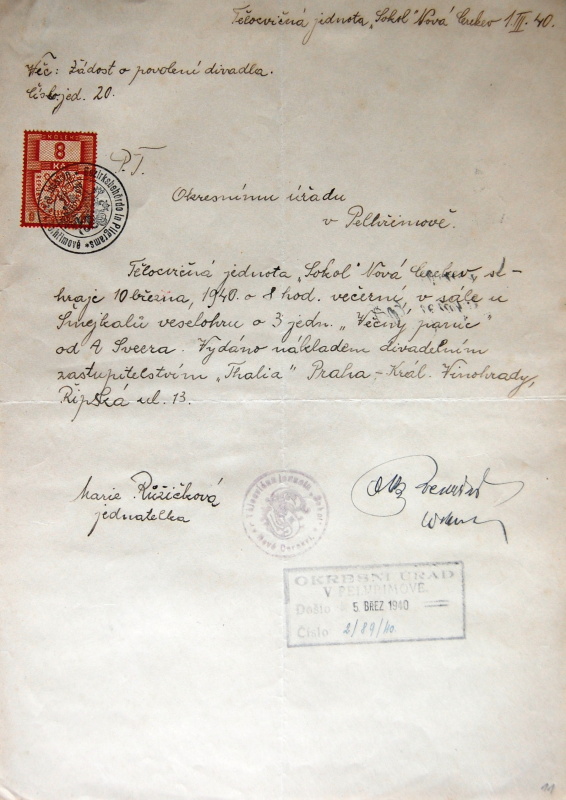 Tělocvičná jednota „Sokol" Nová Cerkev 1.III.40.
Věc: Žádost o povolení divadla.
Číslo jed. 20.
8
K
P.T.
Okresnímu úřadu
v Pelhřimově.
Tělocvičná jednota „Sokol" Nová Cerkev, se-
hraje 10 března, 1940 o 8 hod. večerní, v sále u
Smejkalů veselohru o 3 jedn. „Věčný panic"
od A Sveera. Vydáno nákladem divadelním
zastupitelstvím „Thalia" Praha - Král. Vinohrady,
Řipska ul. 13.
Marie Růžičková
jednatelka
Tělocvičná jednota „Sokol" Nová Cerkev
OKRESNÍ ÚŘAD
V PELHŘIMOVĚ.
Došlo 5. BŘEZ 1940
Číslo 2/89/40.
11